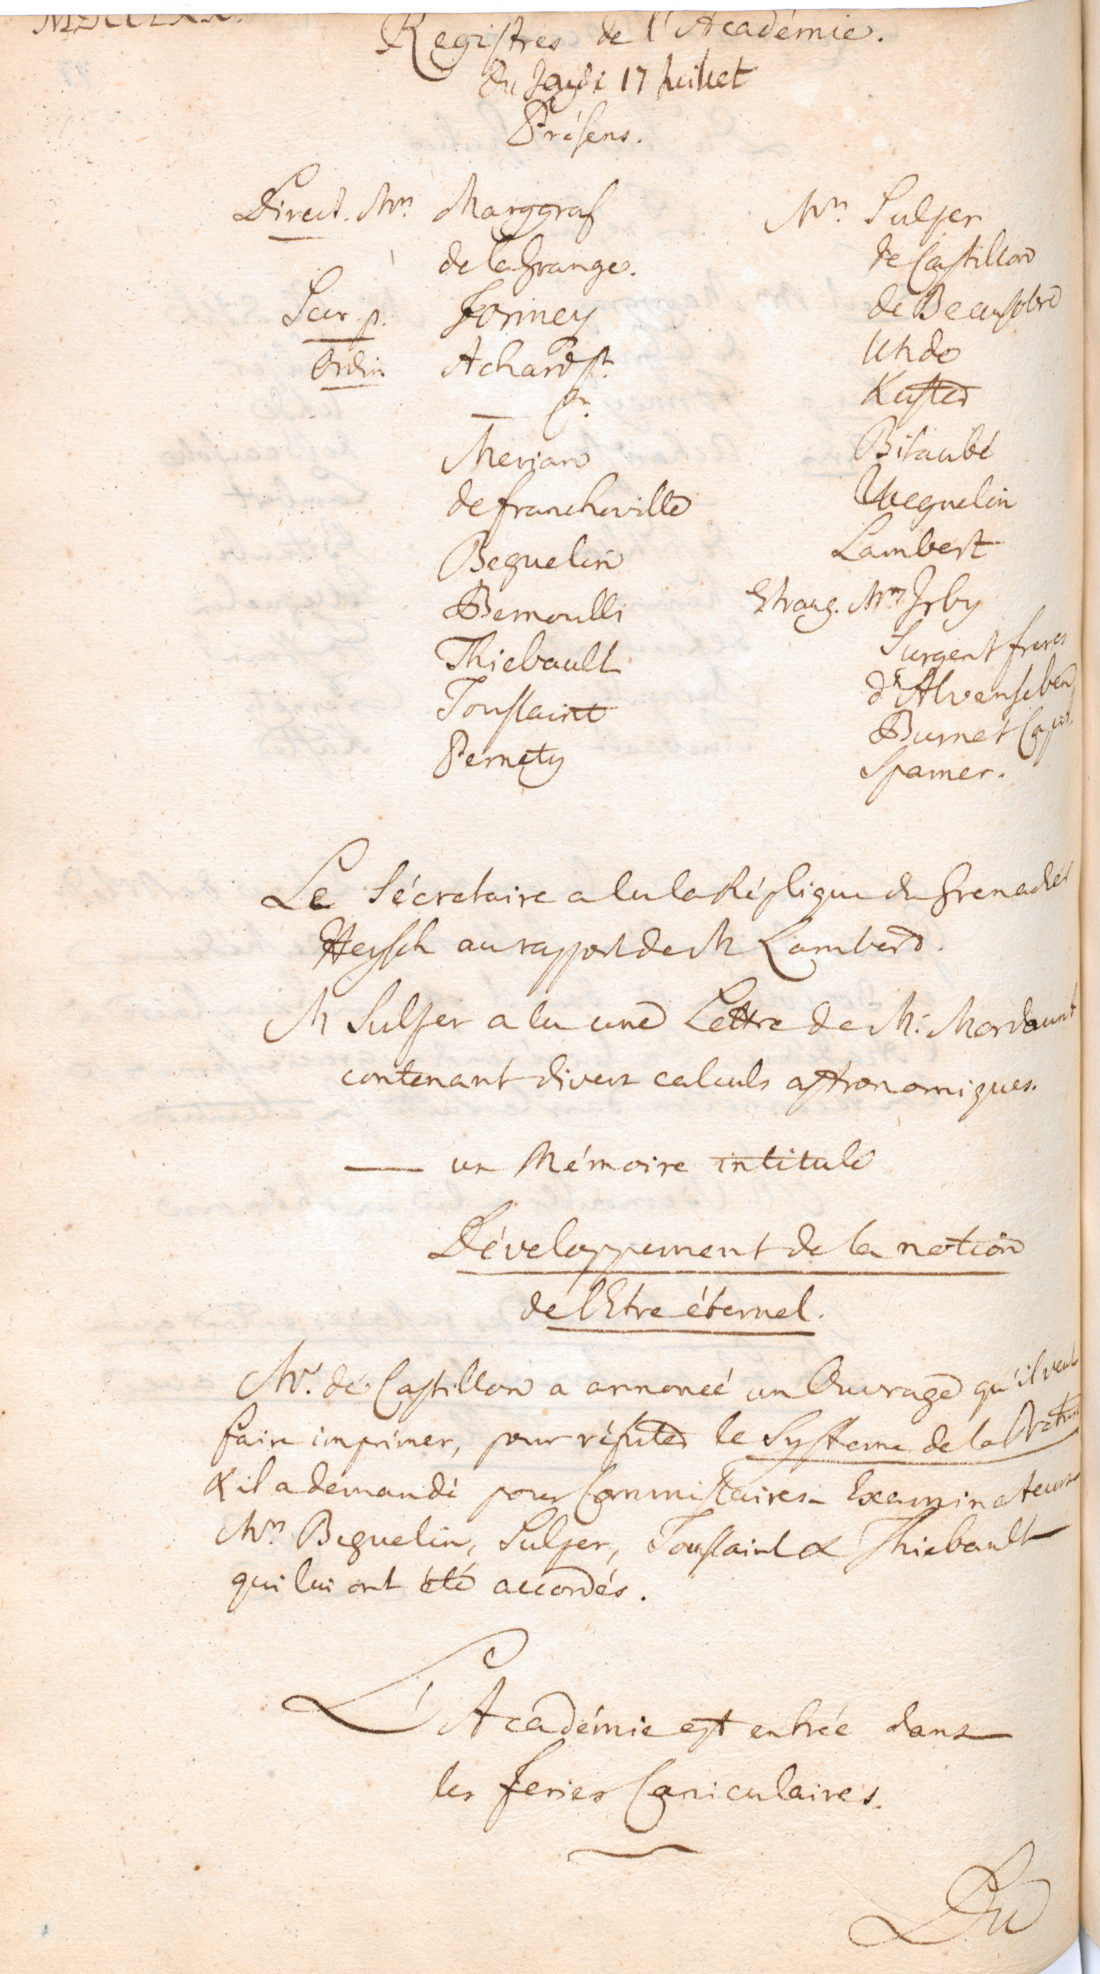 MDCCLXX.
Registres de l'Académie.
Du Jeudi 17 Juillet
Présens.
Direct. Mrs. Marggraf
de la Grange.
Secr. p. Formey
Ordin Achard st.
— pr.
Merian
de Francheville
Beguelin
Bernoulli
Thiebault
Toussaint
Pernety
Mrs Sulzer
de Castillon
de Beausobre
Uhde
Kuster
Bitaubé
Weguelin
Lambert
Etrang. Mrs Irby
Surgent freres
d'Alvensleben
Burnet Cap.
Spamer.
Le Sécretaire a lu la Réplique du Grenadier
Heysch au rapport de M Lambert.
M Sulzer a lu une Lettre de M. Mordaunt
contenant divers calculs astronomiques.
— un Mémoire intitulé
Développement de la notion
de l'Etre éternel.
Mr. de Castillon a annoncé un Ouvrage qu'il veut
faire imprimer, pour réfuter le Systeme de la Nature
& il a demandé pour Commissaires-Examinateurs
Mrs Beguelin, Sulzer, Toussaint & Thiebault
qui lui ont été accordés.
L'Académie est entrée dans
les feries Caniculaires.
Du